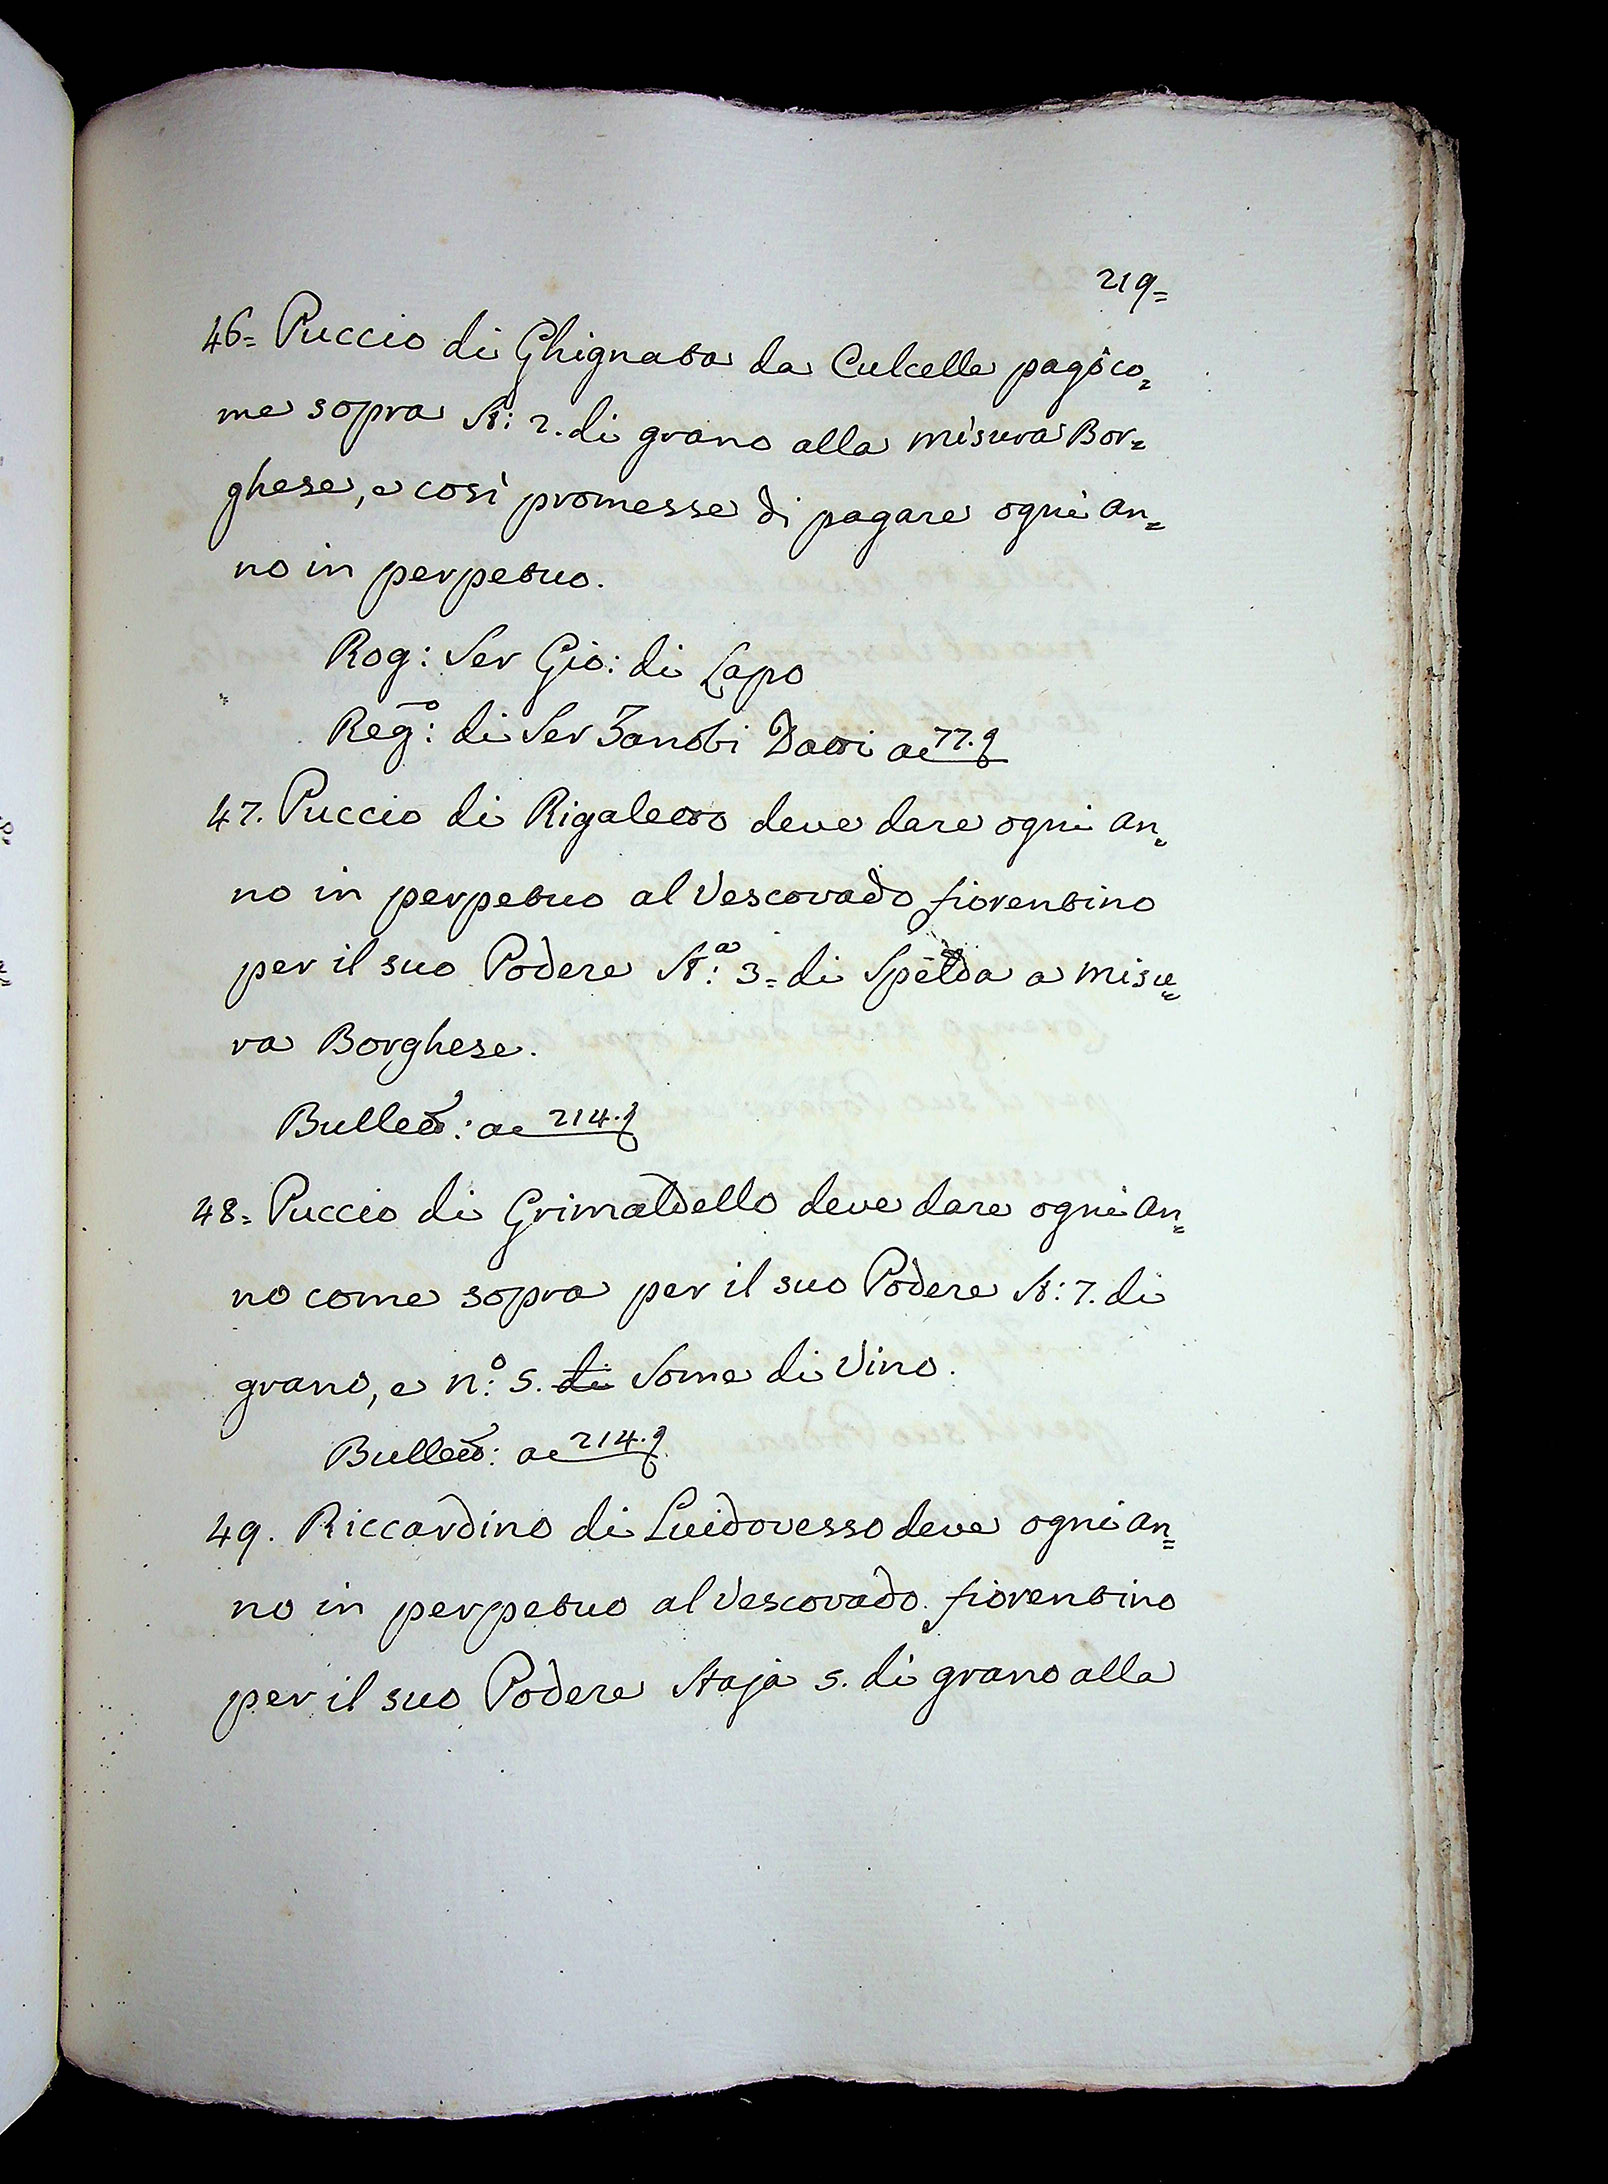 219=
46= Puccio di Ghignata da Culcelle pagò co=
me sopra St: 2. di grano alla misura Bor=
ghese, e così promesse di pagare ogni an=
no in perpetuo.
Rog: Ser Gio: di Lapo
Reg.o: di Ser Zanobi Datti ac 77.
47. Puccio di Rigaletto deve dare ogni an=
no in perpetuo al Vescovado fiorentino
per il suo Podere St.a: 3= di Spelda a misu=
ra Borghese.
Bullett: ac 214.
48= Puccio di Grimaldello deve dare ogni an=
no come sopra per il suo Podere St: 7. di
grano, e n:o 5. di Some di Vino.
Bullett: ac 214.
49. Riccardino di Luidovesso deve ogni an=
no in perpetuo al Vescovado fiorentino
per il suo Podere Staja 5. di grano alla